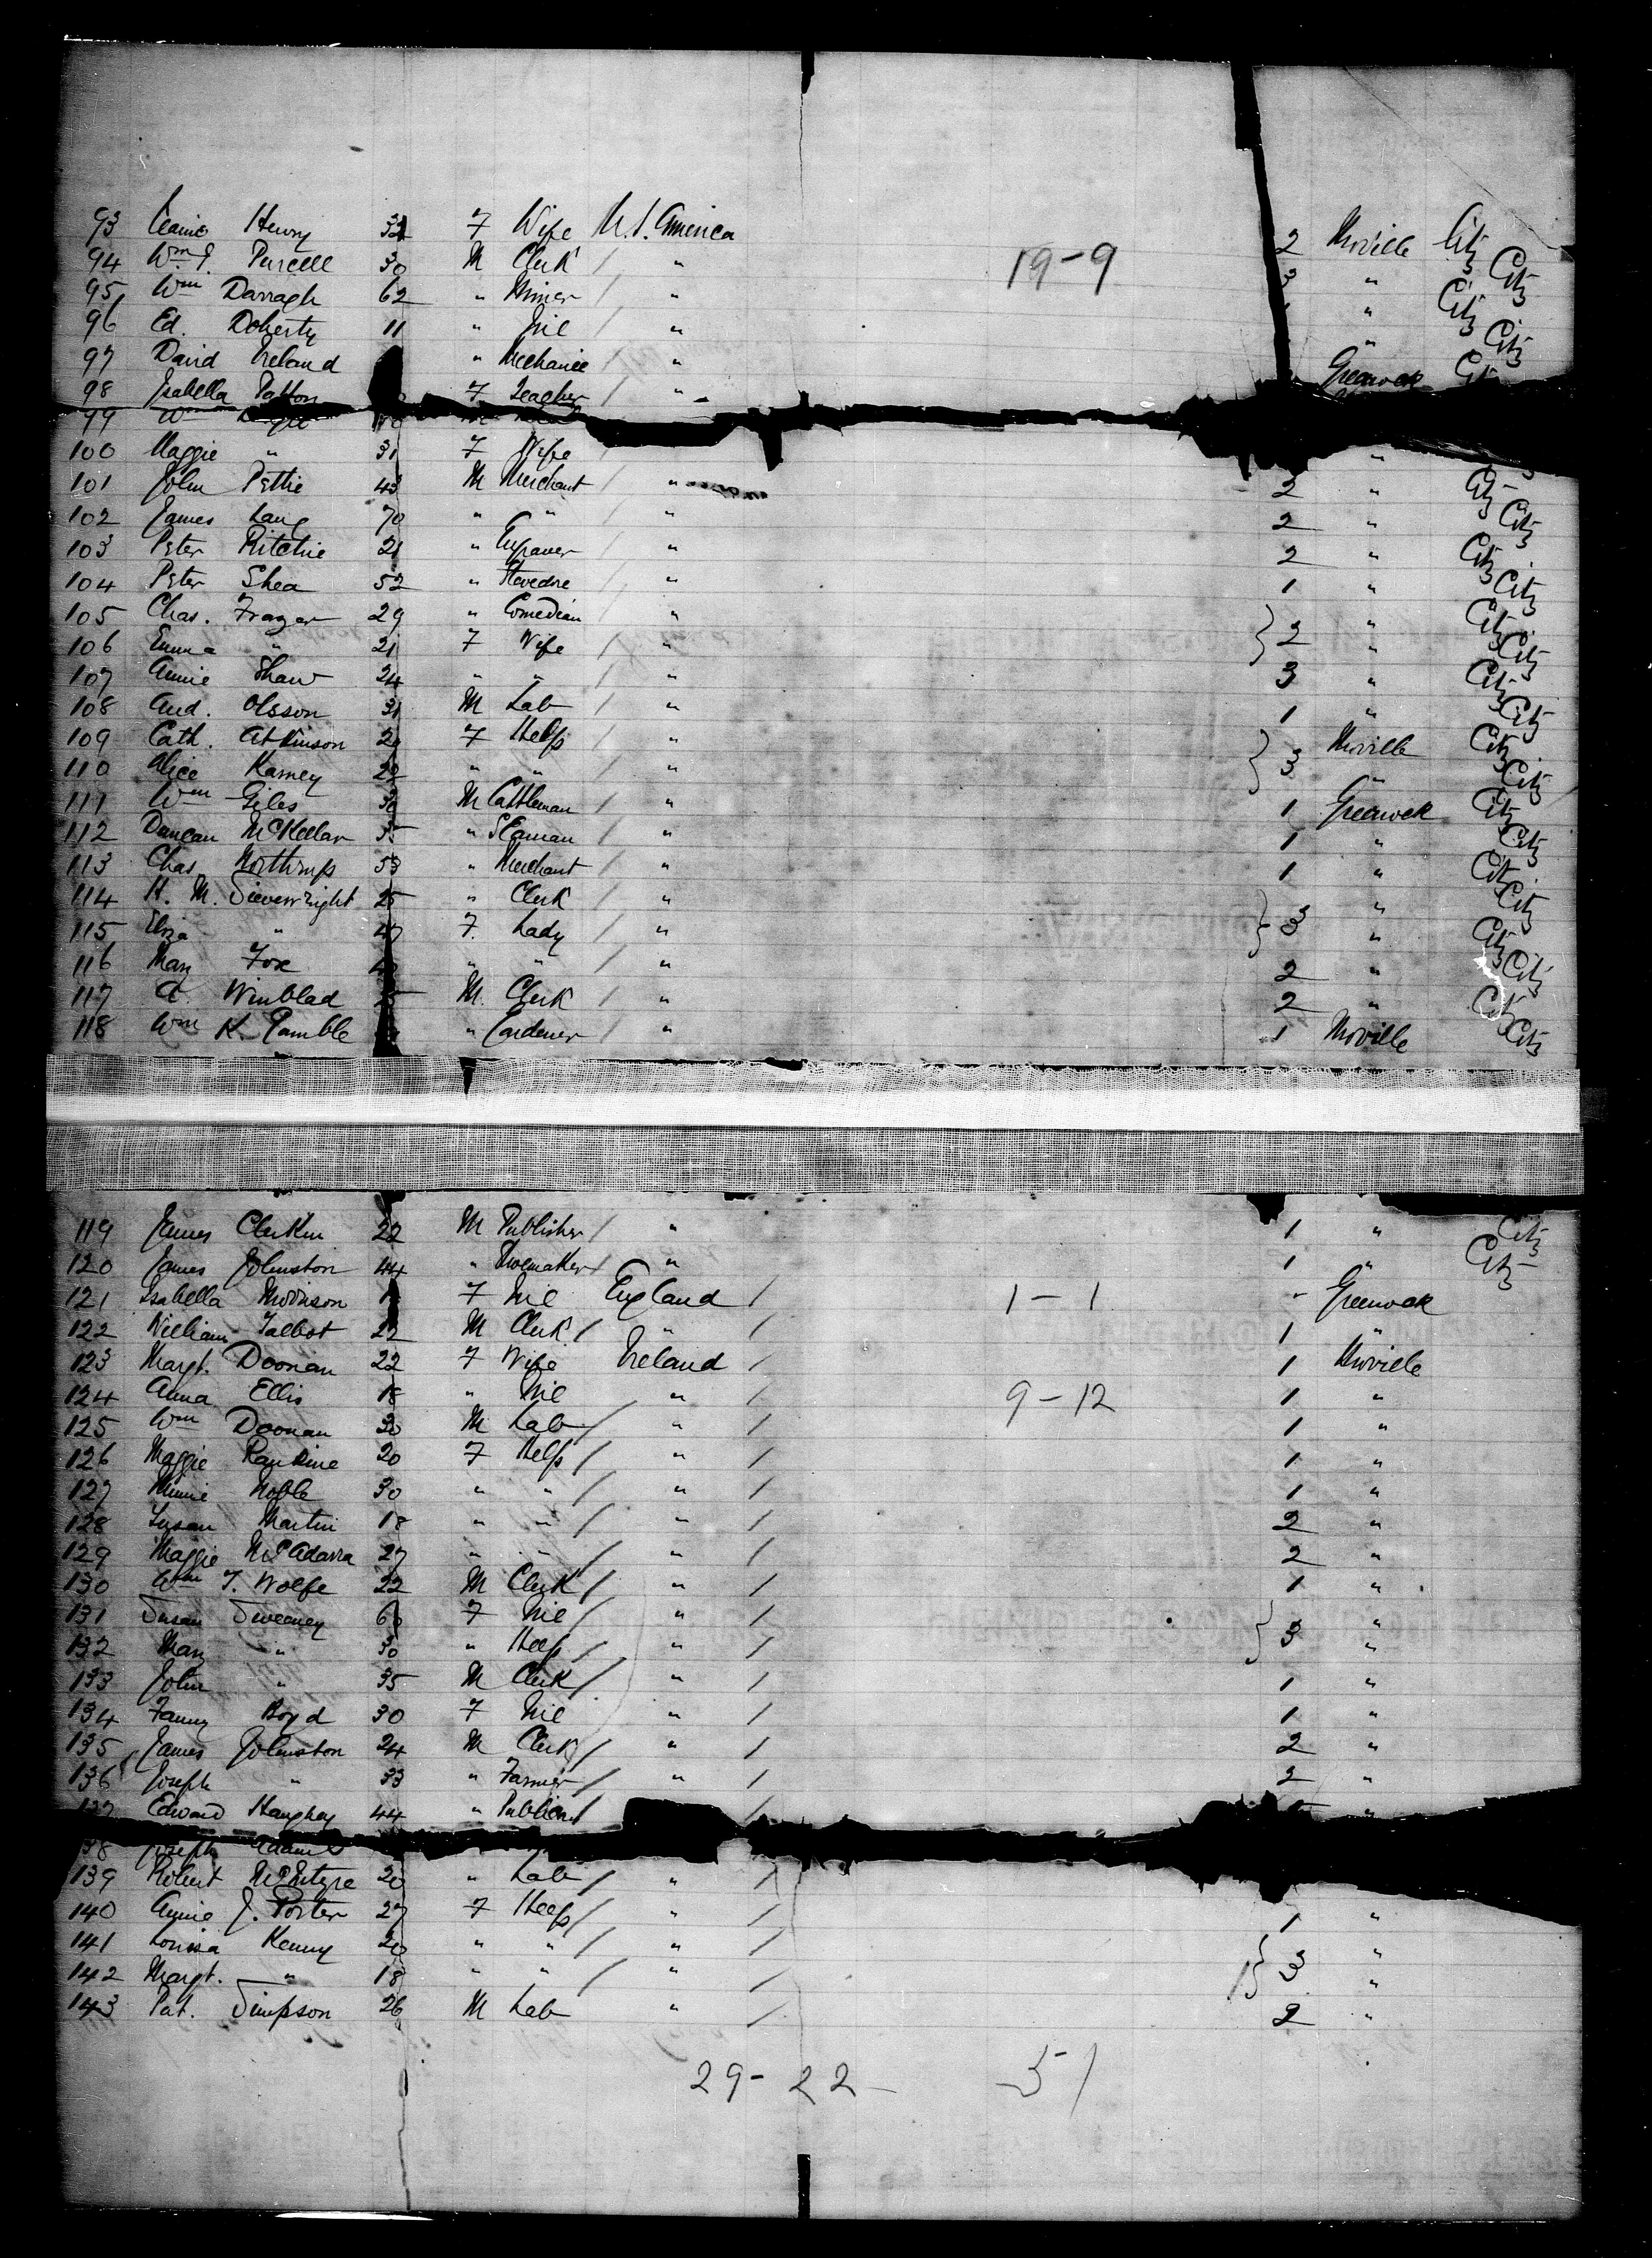 93 Henry 32 F Wife U.S. America 2 Moville Citz
94 Wm J. Purcell 30 M Clerk / " 19-9 3 " Citz
95 Wm Darragh 62 " Miner / " 1 " Citz
96 Ed. Doherty 11 " Nil / " " Citz
97 David Ireland " Mechanic / " Greenock Cit
98 Isabella Patton F Teacher / "
99 Wm
100 Maggie " 31 F Wife / "
101 John Pettie 43 M Merchant / " 2 " Citz
102 James Lang 70 " " / " 2 " Citz
103 Peter Ritchie 21 " Engraver / " 2 " Citz
104 Peter Shea 52 " Stevedore / " 1 " Citz
105 Chas. Frazer 29 " Comedian / " } 2 " Citz
106 Emma " 21 F Wife / " " Citz
107 Annie Shaw 24 " " / " 3 " Citz
108 And. Olsson 31 M Lab / " 1 " Citz
109 Cath. Atkinson 20 F Help / " } 3 Moville Citz
110 Alice Kamey 22 " " / " " Citz
111 Wm Giles 30 M Cattleman / " 1 Greenock Citz
112 Duncan McKellar 35 " Seaman / " 1 " Citz
113 Chas. Northrup 53 " Merchant / " 1 " Cit
114 H. M. Sievewright 25 " Clerk / " } 3 " Citz
115 Eliza " 40 F. Lady / " " Citz
116 Mary Fox " " / " 2 " Citz
117 A. Winblad 25 M. Clerk / " 2 " Citz
118 Wm K. Gamble " Gardener / " 1 Moville Citz
119 James Clerkin 22 M Publisher / " 1 " Citz
120 James Johnston 44 " Shoemaker / " 1 " Citz
121 Isabella Morrison F Nil England / 1-1 " Greenock
122 William Talbot 22 M Clerk / " / 1 "
123 Margt. Doonan 22 F Wife Ireland / 1 Moville
124 Anna Ellis 18 " Nil " / 9-12 1 "
125 Wm Doonan 30 M Lab / " / 1 "
126 Maggie Rankine 20 F Help / " / 1 "
127 Minnie Noble 30 " " / " / 1 "
128 Susan Martin 18 " " / " / 2 "
129 Maggie McAdarra 27 " " / " / 2 "
130 Wm T. Wolfe 22 M Clerk / " / 1 "
131 Susan Sweeney 60 F Nil / " / } 3 "
132 Mary " 30 " Help / " / "
133 John " 35 M Clerk / " / 1 "
134 Fanny Boyd 30 F Nil " / 1 "
135 James Johnston 24 M Clerk / " / 2 "
136 Joseph " 33 " Farmer / " / 2 "
137 Edward Haughey 44 " Publican / / "
138 Joseph Adams
139 Robert McIntyre 20 " Lab / " /
140 Annie J. Porter 27 F Help / " / 1 "
141 Louisa Kenny 20 " " / " / } 3 "
142 Margt. " 18 " " / " / "
143 Pat. Simpson 26 M Lab " / 2 "
29-22- 51